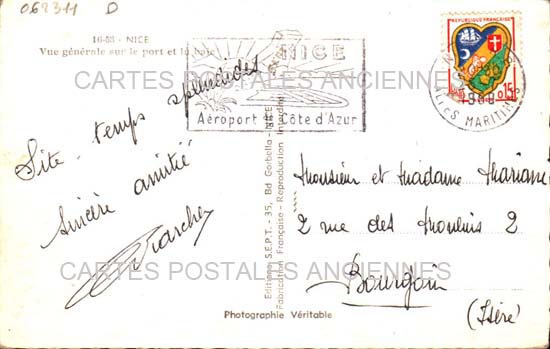 062311 D
16-53 - NICE
Vue générale sur le port et la baie
Site - temps splendides
Sincère amitié
NICE
Aéroport Côte d'Azur
REPUBLIQUE FRANÇAISE
0,15
MARITIMES
Editions S.E.P.T. - 35, Bd Gorbella - NICE
Fabrication Française - Reproduction Interdite
Monsieur et Madame Mariani
2 rue des Moulins 2
Bourgoin
(Isère)
Photographie Véritable
CARTES POSTALES ANCIENNES
CARTES POSTALES ANCIENNES